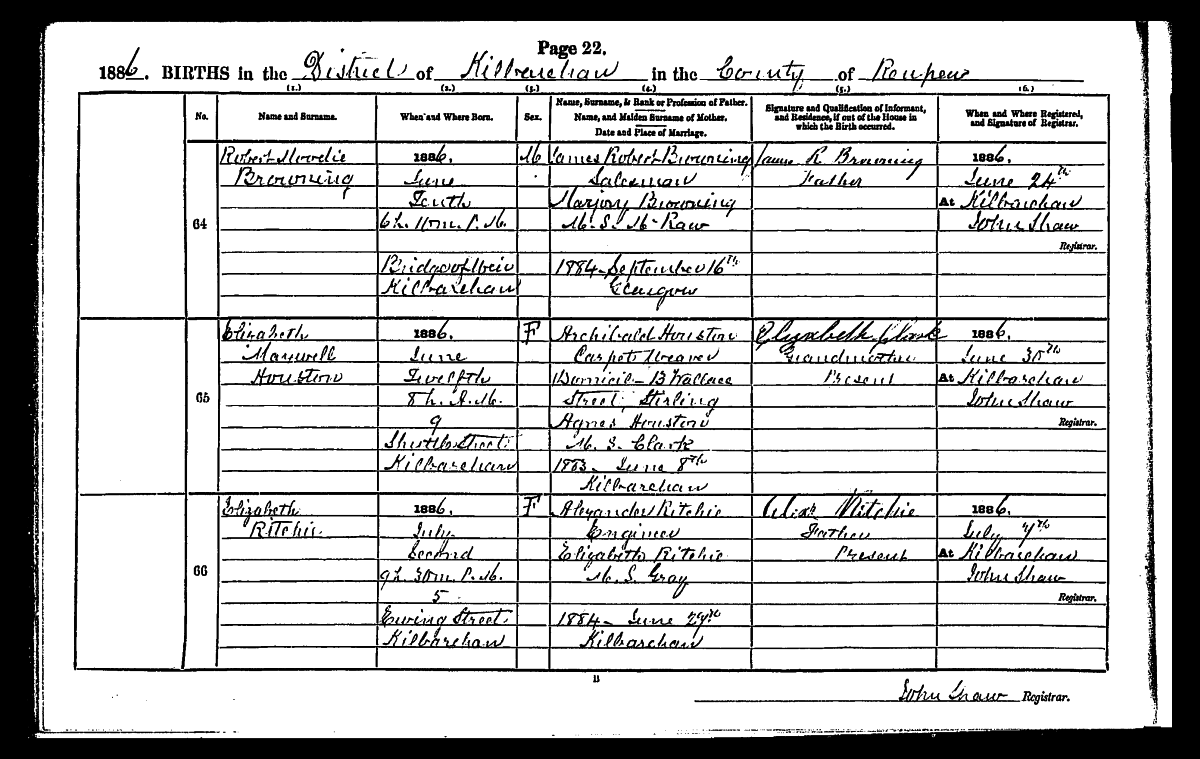 Page 22.
1886. BIRTHS in the District of Kilbarchan in the County of Renfrew
(1.) (2.) (3.) (4.) (5.) (6.)
No. Name and Surname. When and Where Born. Sex. Name, Surname, & Rank or Profession of Father. Name, and Maiden Surname of Mother. Date and Place of Marriage. Signature and Qualification of Informant, and Residence, if out of the House in which the Birth occurred. When and Where Registered, and Signature of Registrar.
Robert 1886. M James Robert Browning James R Browning 1886.
Browning June Salesman Father June 24th
Tenth Marjory Browning At Kilbarchan
64 6 h. 10 m. P.M. M.S. McRaw John Shaw
Registrar.
Bridge of Weir 1884 September 16th
Kilbarchan Glasgow
Elizabeth 1886. F Archibald Houston Elizabeth Clark 1886.
Maxwell June Carpet Weaver Grandmother June 30th
Houston Twelfth Domicil - B Wallace Present At Kilbarchan
65 8 h. A.M. Street, Stirling John Shaw
9 Agnes Houston Registrar.
Shuttle Street M.S. Clark
Kilbarchan 1883 June 8th
Kilbarchan
Elizabeth 1886. F Alexander Ritchie Alexr Ritchie 1886.
Ritchie July Engineer Father July 7th
Second Elizabeth Ritchie Present At Kilbarchan
66 9 h. 30 m. P.M. M.S. Gray John Shaw
5 Registrar.
Ewing Street 1884 - June 27th
Kilbarchan Kilbarchan
John Shaw Registrar.